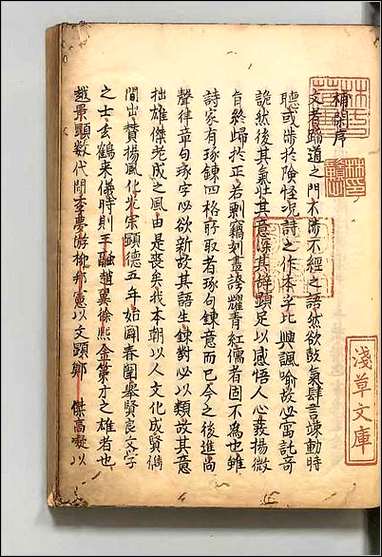 補閑序
文者蹈道之門不涉不經之語然欲鼓氣肆言竦動時
聽或涉於險怪况詩之作本乎比興諷喻故必寓託奇
詭然後其氣壯其意深其辞顕足以感悟人心發揚微
旨終歸於正若剽竊刻畫誇耀青紅儒者固不為也雖
詩家有琢鍊四格所取者琢句鍊意而已今之後進尚
聲律章句琢字必欲新故其語生鍊對必以類故其意
拙雄傑老成之風由是喪矣我本朝以人文化成賢儁
間出賛揚風化光宗顕德五年始闢春闈舉賢良文字
之士玄鶴来儀時則王融趙翼徐熙金策才之雄者也
越景顕數代間李夢游柳邦憲以文顕鄭 傑高凝以
淺草文庫